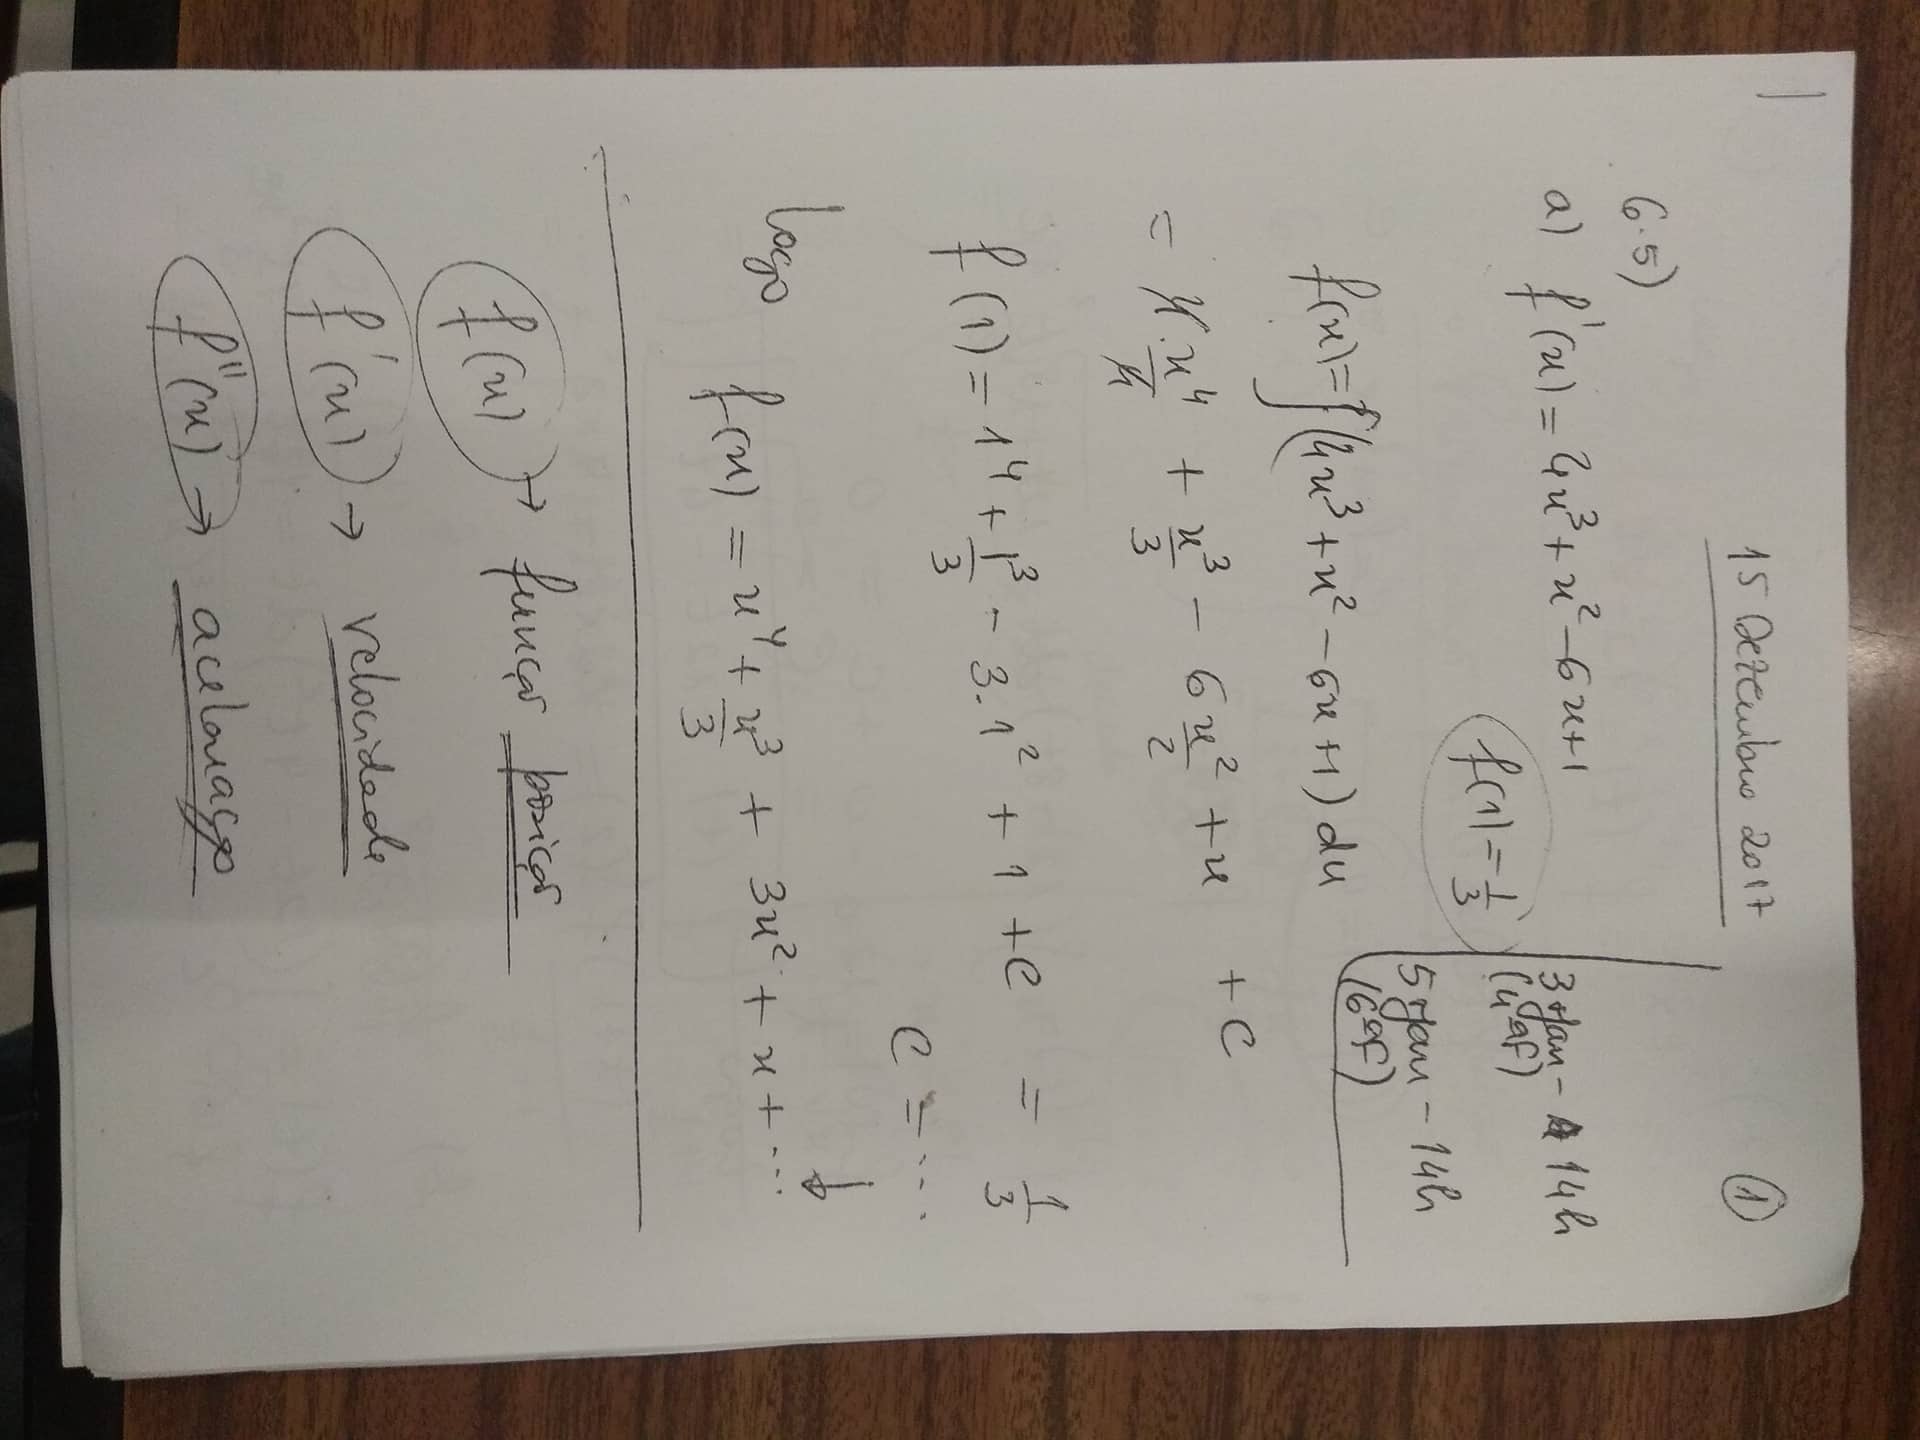 15 Dezembro 2017
1
6.5)
a) f'(x) = 4x³ + x² - 6x + 1
f(1) = 1/3
3 Jan - 14h
(4ªF)
5 Jan - 14h
(6ªF)
f(x) = ∫(4x³ + x² - 6x + 1) dx
= 4 . x⁴/4 + x³/3 - 6 x²/2 + x + C
f(1) = 1⁴ + 1³/3 - 3.1² + 1 + C = 1/3
C = ...
↓
Logo f(x) = x⁴ + x³/3 + 3x² + x + ...
f(x) → função posição
f'(x) → velocidade
f''(x) → aceleração